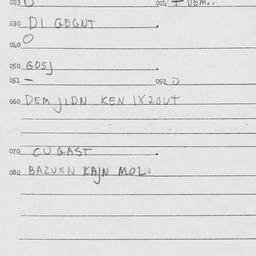 023 O
030 DI GEGNT
040 O
050 GOSJ
051 – 052 D
060 DEM JIDN KEN IX2GUT
070 CU GAST
080 BAZUXN KAJN MOL.